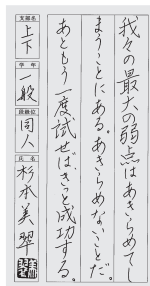 我々の最大の弱点はあきらめてし
まうことにある。あきらめないことだ。
あともう一度試せば、きっと成功する。
支部名
上下
学年
一般
段級位
同人
氏名
杉水美翠